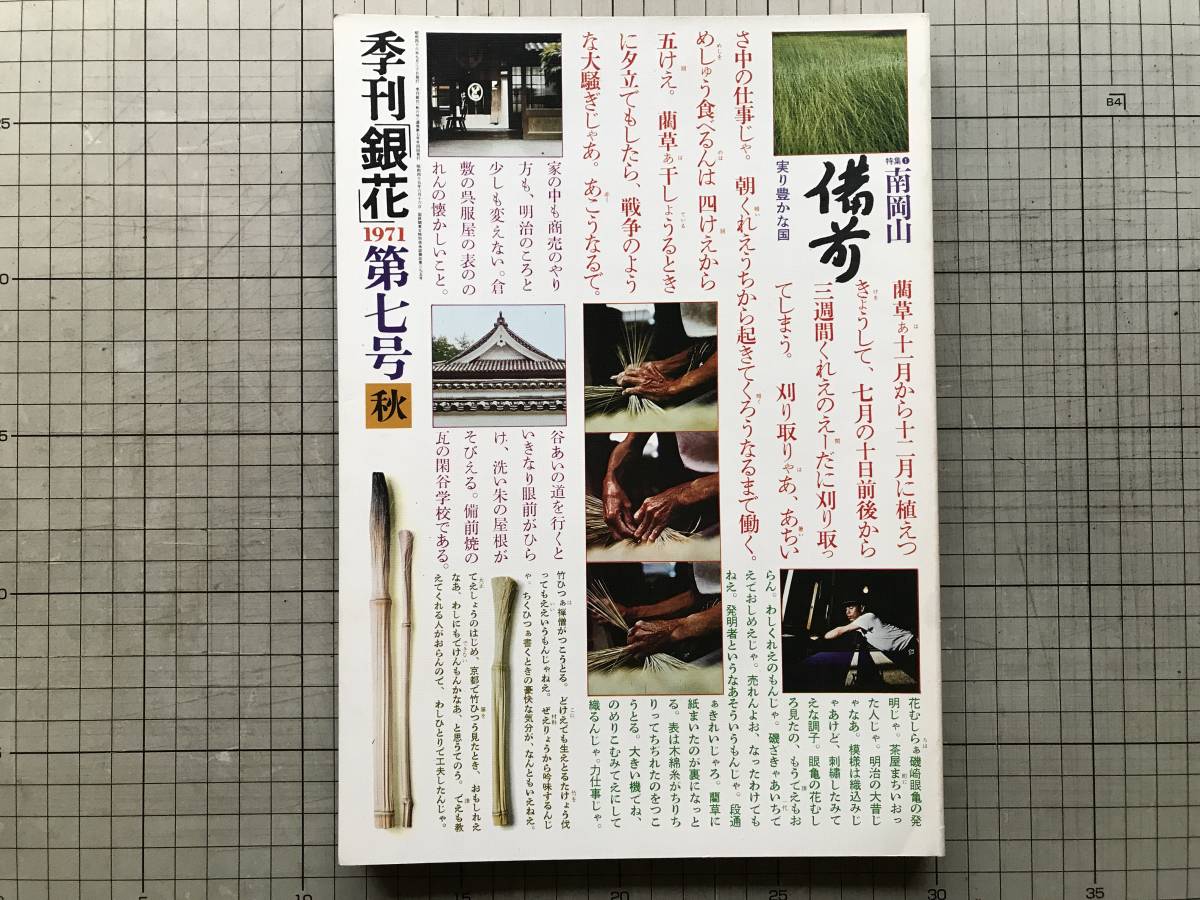 季刊「銀花」1971 第七号 秋
特集❶ 南岡山
備前
実り豊かな国
藺草ぁ十一月から十二月に植えつ
きょうして、七月の十日前後から
三週間くれえのえーだに刈り取っ
てしまう。刈り取りゃあ、あちい
さ中の仕事じゃ。朝くれえうちから起きてくろうなるまで働く。
めしゅう食べるんは四けえから
五けえ。藺草ぁ干しょうるとき
に夕立でもしたら、戦争のよう
な大騒ぎじゃあ。あこうなるで。
家の中も商売のやり
方も、明治のころと
少しも変えない。倉
敷の呉服屋の表のの
れんの懐かしいこと。
谷あいの道を行くと
いきなり眼前がひら
け、洗い朱の屋根が
そびえる。備前焼の
瓦の閑谷学校である。
花むしらぁ磯崎眠亀の発
明じゃ。茶屋まちいおっ
た人じゃ。明治の大昔じ
ゃなあ。模様は織込みじ
ゃあけど、刺繍したみて
えな調子。眠亀の花むし
ろ見たの、もうてえもお
らん。わしくれえのもんじゃ。磯ざきゃあいちて
えておしめえじゃ。売れんよお、なったわけでも
ねえ。発明者というなあそういうもんじゃ。段通
ぁきれいじゃろ。藺草に
紙まいたのが裏になっと
る。表は木綿糸がちりち
りってちぢれたのをつこ
うとる。大きい機でね、
のめりこむみてえにして
織るんじゃ。力仕事じゃ。
竹ひつぁ禅僧がつこうとる。どけえでも生えとるたけょう伐
ってもええいうもんじゃねえ。ぜえりょうから吟味するんじ
ゃ。ちくひつぁ書くときの豪快な気分が、なんともいえねえ。
てえしょうのはじめ、京都で竹ひつう見たとき、おもしれえ
なあ、わしにもでけんもんかなあ、と思うてのう。てえも教
えてくれる人がおらんので、わしひとりで工夫したんじゃ。
B4
25
20
15
10
5
15
20
25
30
35